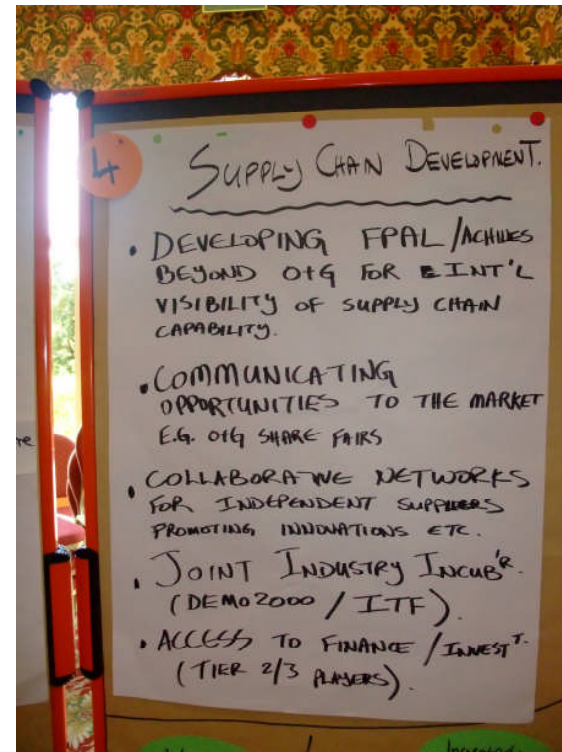 4
SUPPLY CHAIN DEVELOPMENT.
• DEVELOPING FPAL/ACHILLES
BEYOND O+G FOR INT'L
VISIBILITY OF SUPPLY CHAIN
CAPABILITY.
• COMMUNICATING
OPPORTUNITIES TO THE MARKET
E.G. O+G SHARE FAIRS
• COLLABORATIVE NETWORKS
FOR INDEPENDENT SUPPLIERS
PROMOTING INNOVATIONS ETC.
• JOINT INDUSTRY INCUB'R.
(DEMO2000 / ITF).
• ACCESS TO FINANCE / INVEST'T.
(TIER 2/3 PLAYERS).